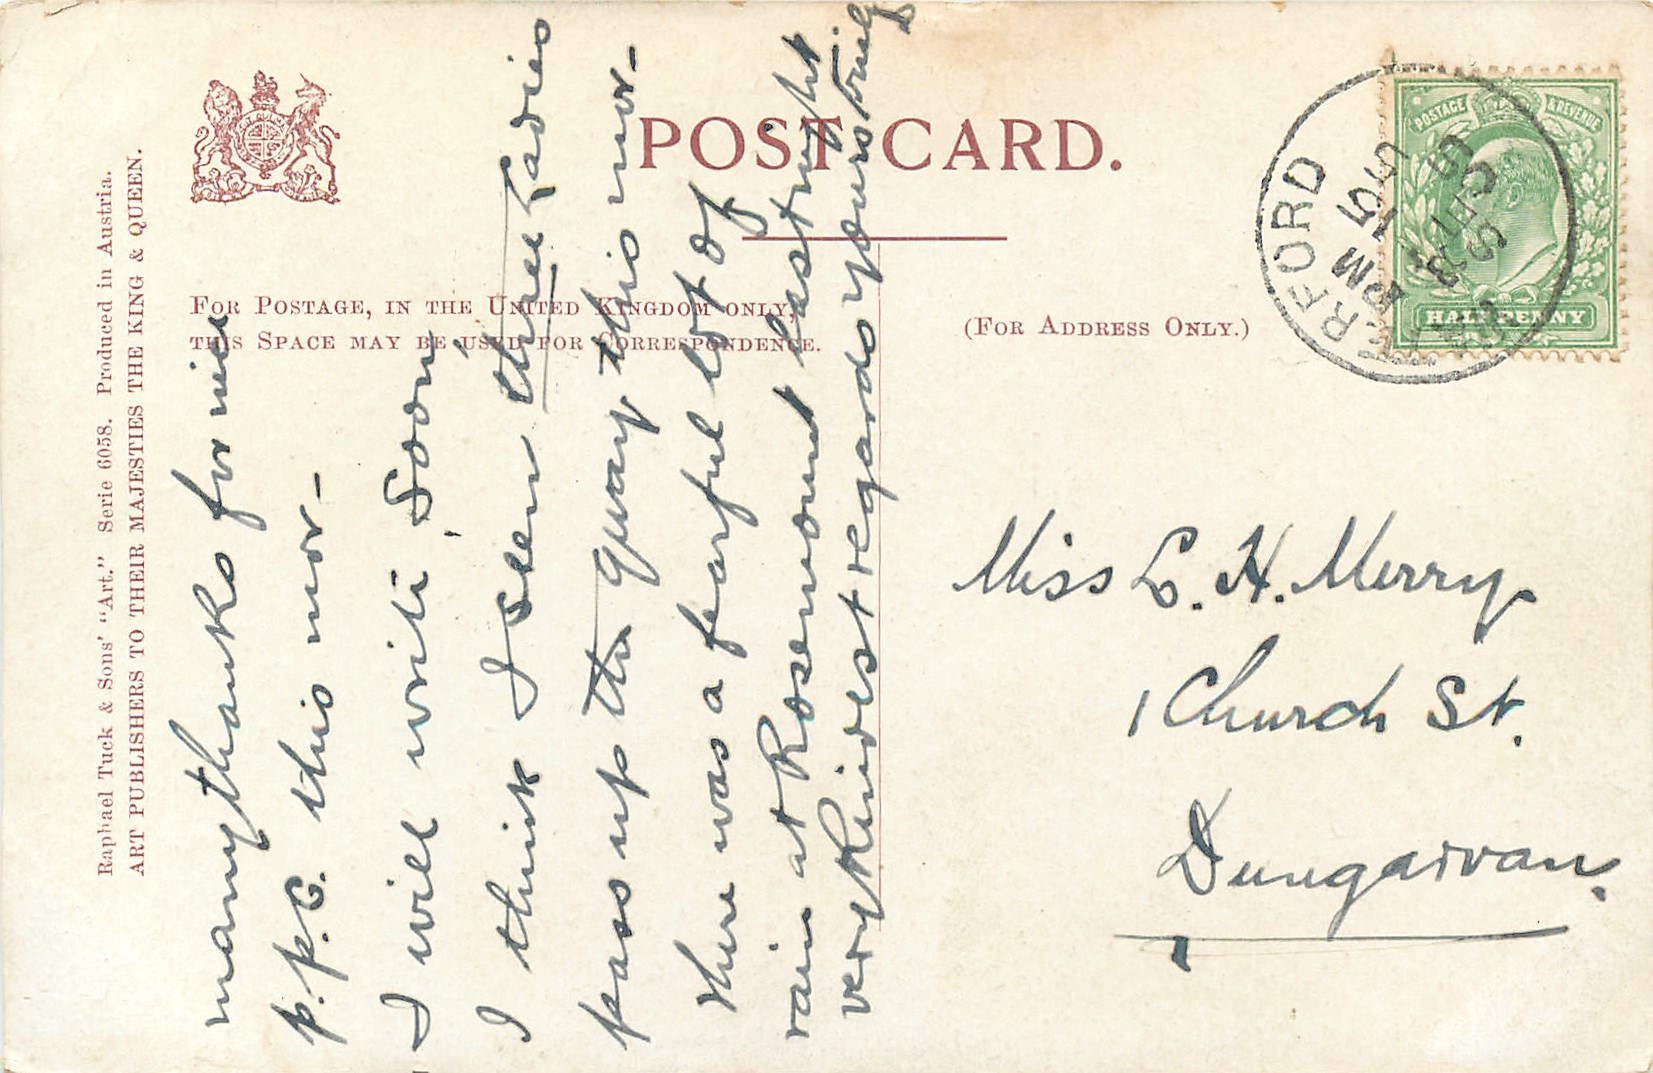 POST CARD.
FOR POSTAGE, IN THE UNITED KINGDOM ONLY,
THIS SPACE MAY BE USED FOR CORRESPONDENCE.
(FOR ADDRESS ONLY.)
Raphael Tuck & Sons' "Art." Serie 6058. Produced in Austria.
ART PUBLISHERS TO THEIR MAJESTIES THE KING & QUEEN.
many thanks for nice
p.p.c. this mor-
I will write soon
I think I seen three Ladies
pass up the quay this mor-
there was a fearful lot of
rain at Rosemount last night
very kindest regards yours truly
Miss L. H. Merry
1 Church St.
Dungarvan.
POSTAGE & REVENUE
HALFPENNY
ERFORD
PM